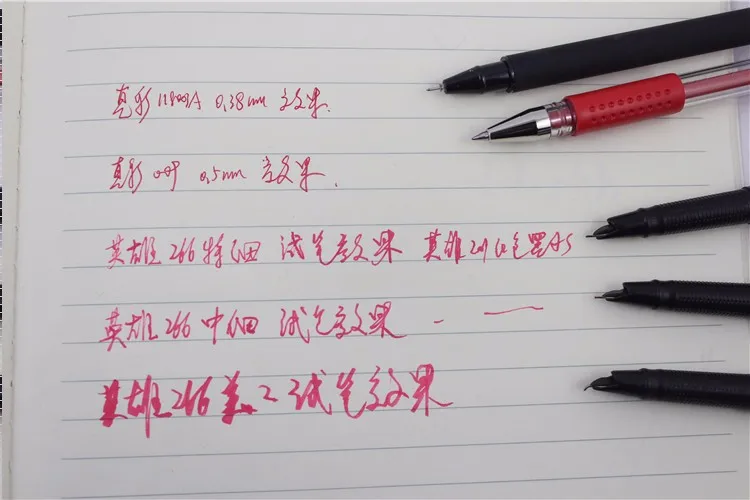 真彩 11800A 0.38mm 效果.
真彩 009 0.5mm 效果.
英雄 266 特细 试笔效果 英雄
英雄 266 中细 试笔效果
英雄 266 美工 试笔效果